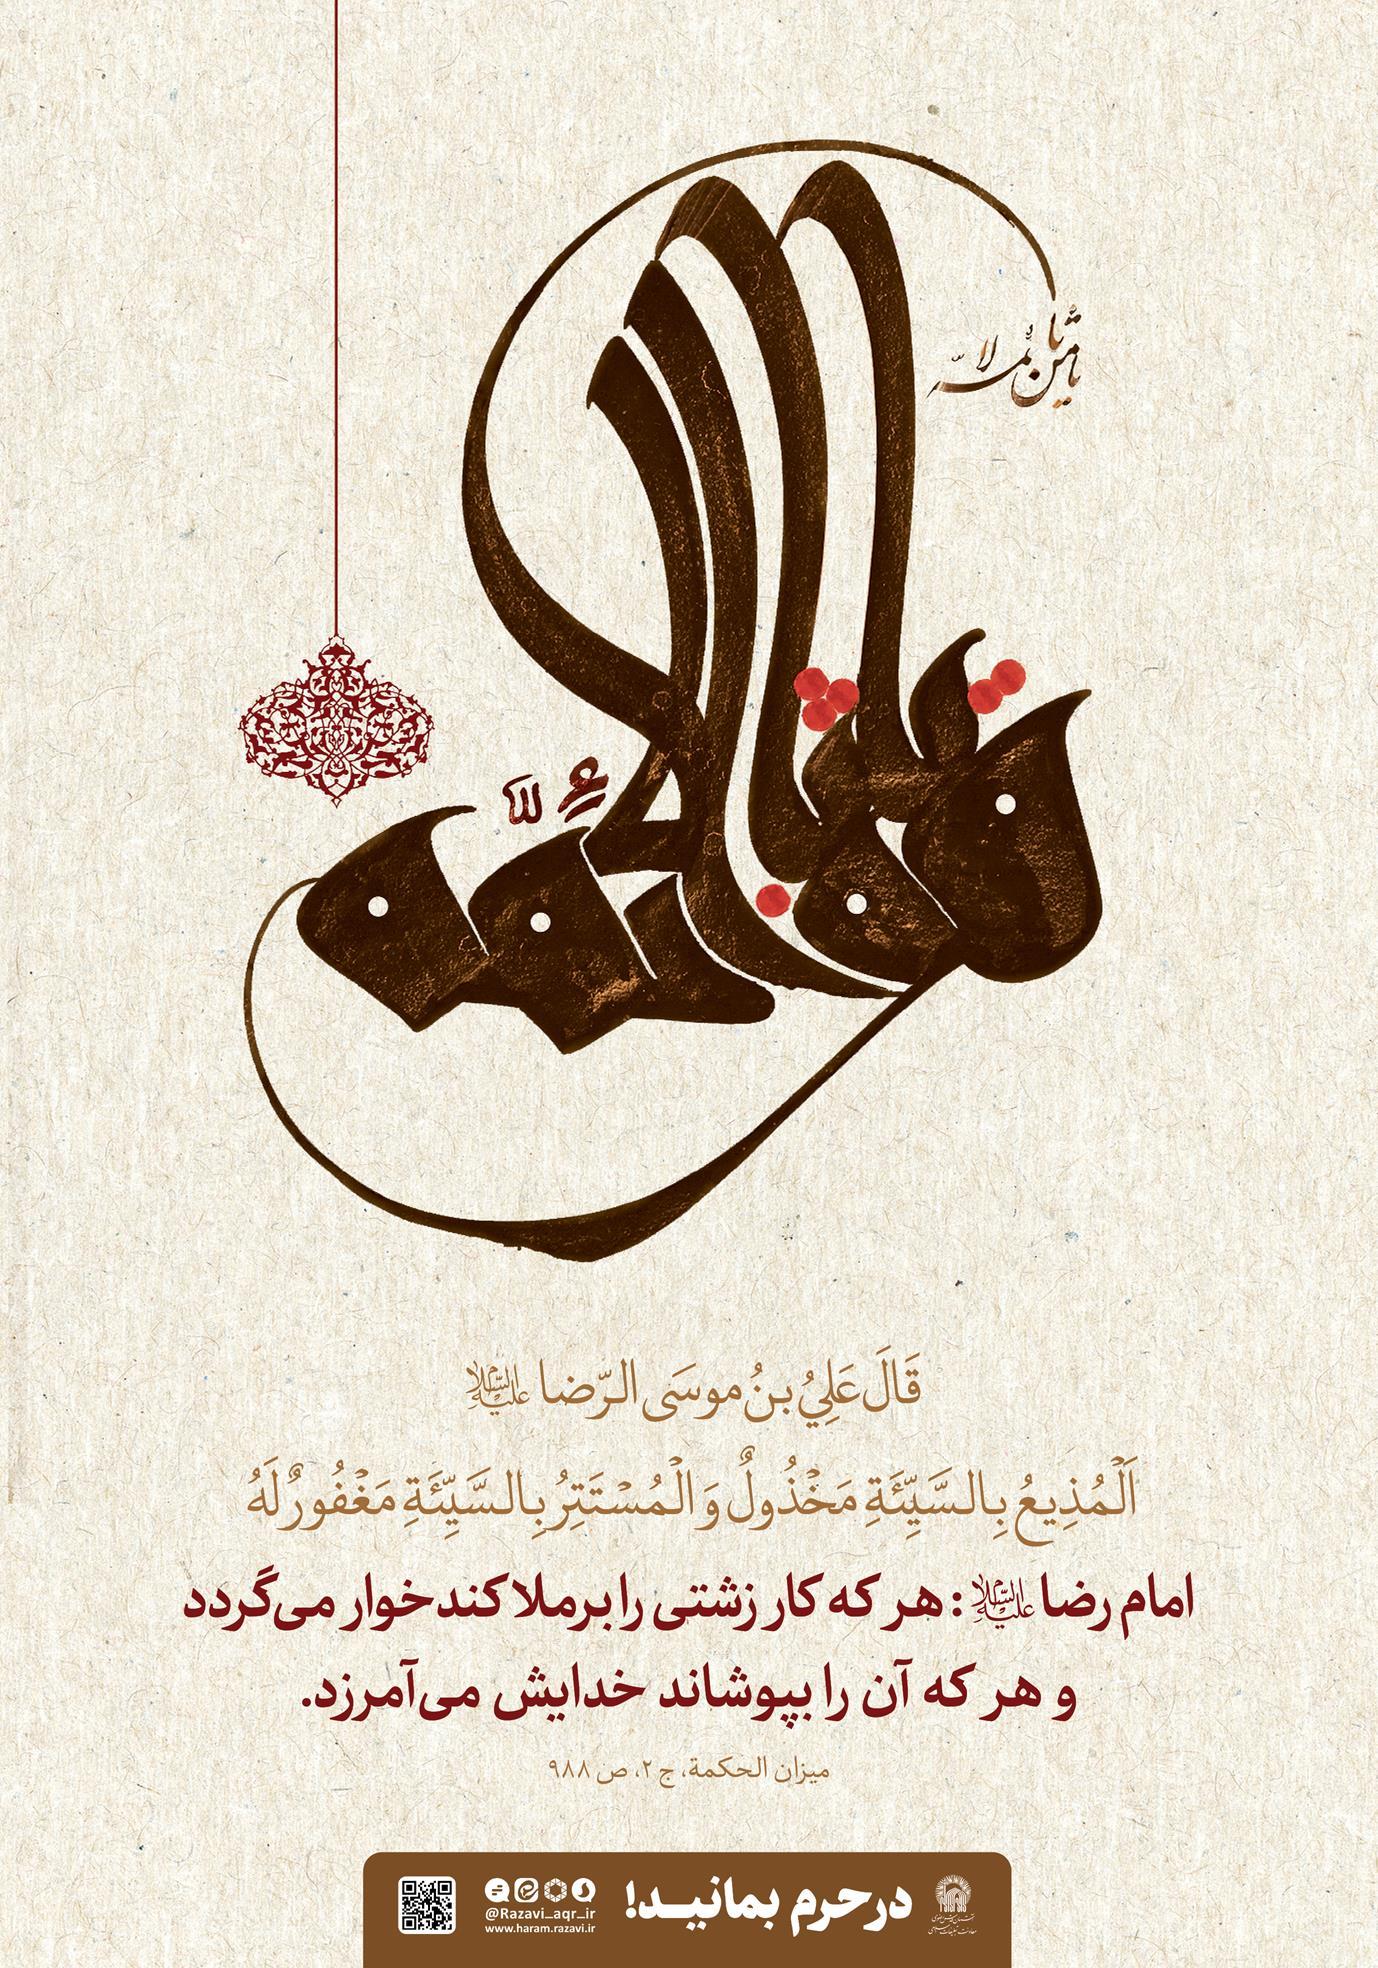 قَالَ عَلِيُ بنُ موسَى الرّضا علیه السلام
اَلْمُذِيعُ بِالسَّيِّئَةِ مَخْذُولٌ وَ الْمُسْتَتِرُ بِالسَّيِّئَةِ مَغْفُورٌ لَهُ
امام رضا علیه السلام : هر که کار زشتی را برملا کند خوار می‌گردد
و هر که آن را بپوشاند خدایش می‌آمرزد.
میزان الحکمة، ج ۲، ص ۹۸۸
در حرم بمانید!
@Razavi_aqr_ir
www.haram.razavi.ir